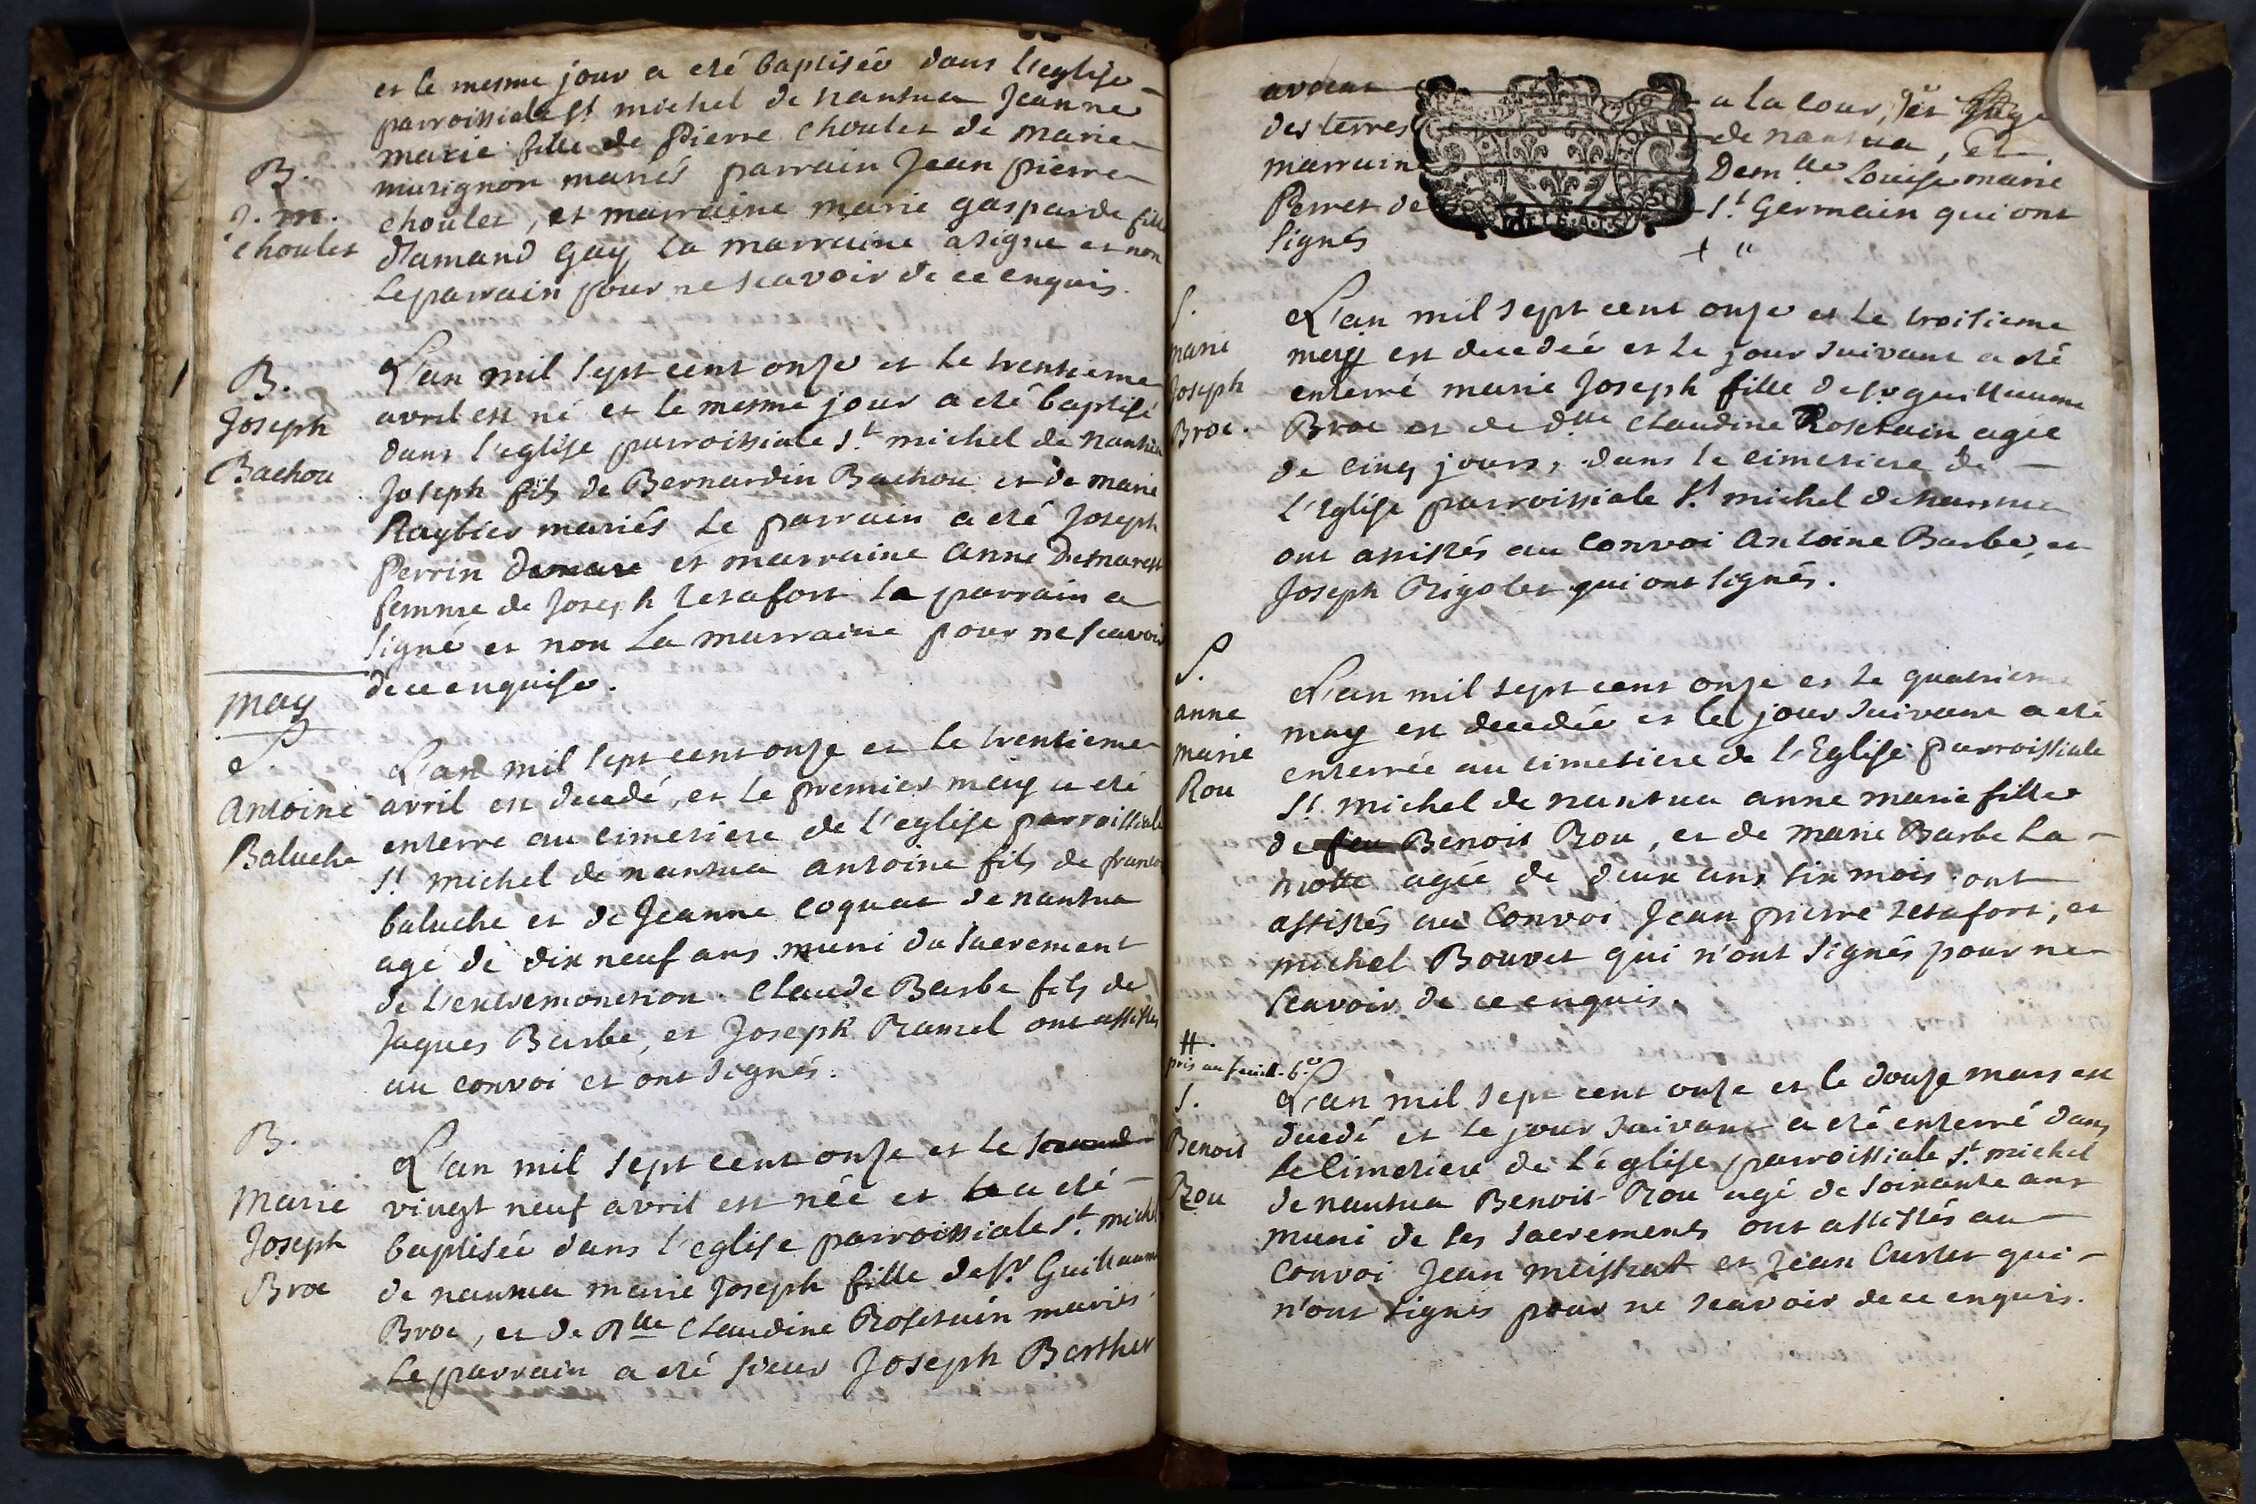 et le mesme jour a eté baptisée dans l'eglise
parroissiale St michel de nantua Jeanne
marie fille de Pierre Choulet de marie
B.
musignon mariés parrain Jean pierre
J. m.
choulet, et marraine marie gasparde fille
Choulet
d'amand Gay la marraine a signe et non
Le parrain pour ne scavoir de ce enquis.
B.
L'an mil sept cent onse et le trentieme
Joseph
avril est né et le mesme jour a eté baptisé
Bachou
dans l'eglise parroissiale St michel de nantua
Joseph fils de Bernardin Bachou et de marie
Raybier mariés Le parrain a eté Joseph
Perrin et marraine anne Demarest
femme de Joseph Letafort la parrain a
signé et non La marraine pour ne scavoir
de ce enquise.
may
S.
L'an mil sept cent onse et le trentieme
Antoine
avril est decedé, et le premier may a eté
Baluche
enterre au cimetiere de l'eglise parroissiale
St michel de nantua antoine fils de francois
baluche et de Jeanne Coquat de nantua
agé de dix neuf ans muni du sacrement
de L'extremonction. Claude Barbe fils de
Jaques Barbe, et Joseph Ramel ont assistés
au convoi et ont signés.
B.
L'an mil sept cent onse et le second
Marie
vingt neuf avril est née et a eté
Joseph
baptisée dans l'eglise parroissiale St. michel
Broc
de nantua marie Joseph fille de Sr Guillaume
Broc, et de Dlle Claudine Rosetain mariés
Le parrain a eté sieur Joseph Barthet
avocat a la cour, et Juge
des terres de nantua, et
marraine Demlle Louise marie
Perret de St Germain qui ont
signés
S.
L'an mil sept cent onse et le troisieme
marie
may est decedeé et le jour suivant a eté
Joseph
enterré marie Joseph fille de Sr guillaume
Broc.
Broc et de dlle Claudine Rosetain agée
de cinq jours, dans le cimetiere de
L'Eglise parroissiale St michel de nantua
ont assistés au Convoi Antoine Barbe, et
Joseph Rigolet qui ont signés.
S.
L'an mil sept cent onse et le quatrieme
anne
may est decedée et le jour suivant a eté
marie
enterrée au cimetiere de l'Eglise parroissiale
Rou
St michel de nantua anne marie fille
de feu Benoit Rou, et de marie Barbe La
motte agée de deux ans six mois ont
assistés au Convoi Jean pierre Letafort, et
michel Bouvet qui n'ont signés pour ne
scavoir de ce enquis.
#.
S.
L'an mil sept cent onse et le douse mars est
Benoit
decedé et le jour suivant a eté enterré dans
Rou
le cimetiere de l'eglise parroissiale St. michel
de nantua Benoit Rou agé de soixante ans
muni de ses sacrements ont assistés au
Convoi Jean et Jean Curlet qui
n'ont signés pour ne scavoir de ce enquis.